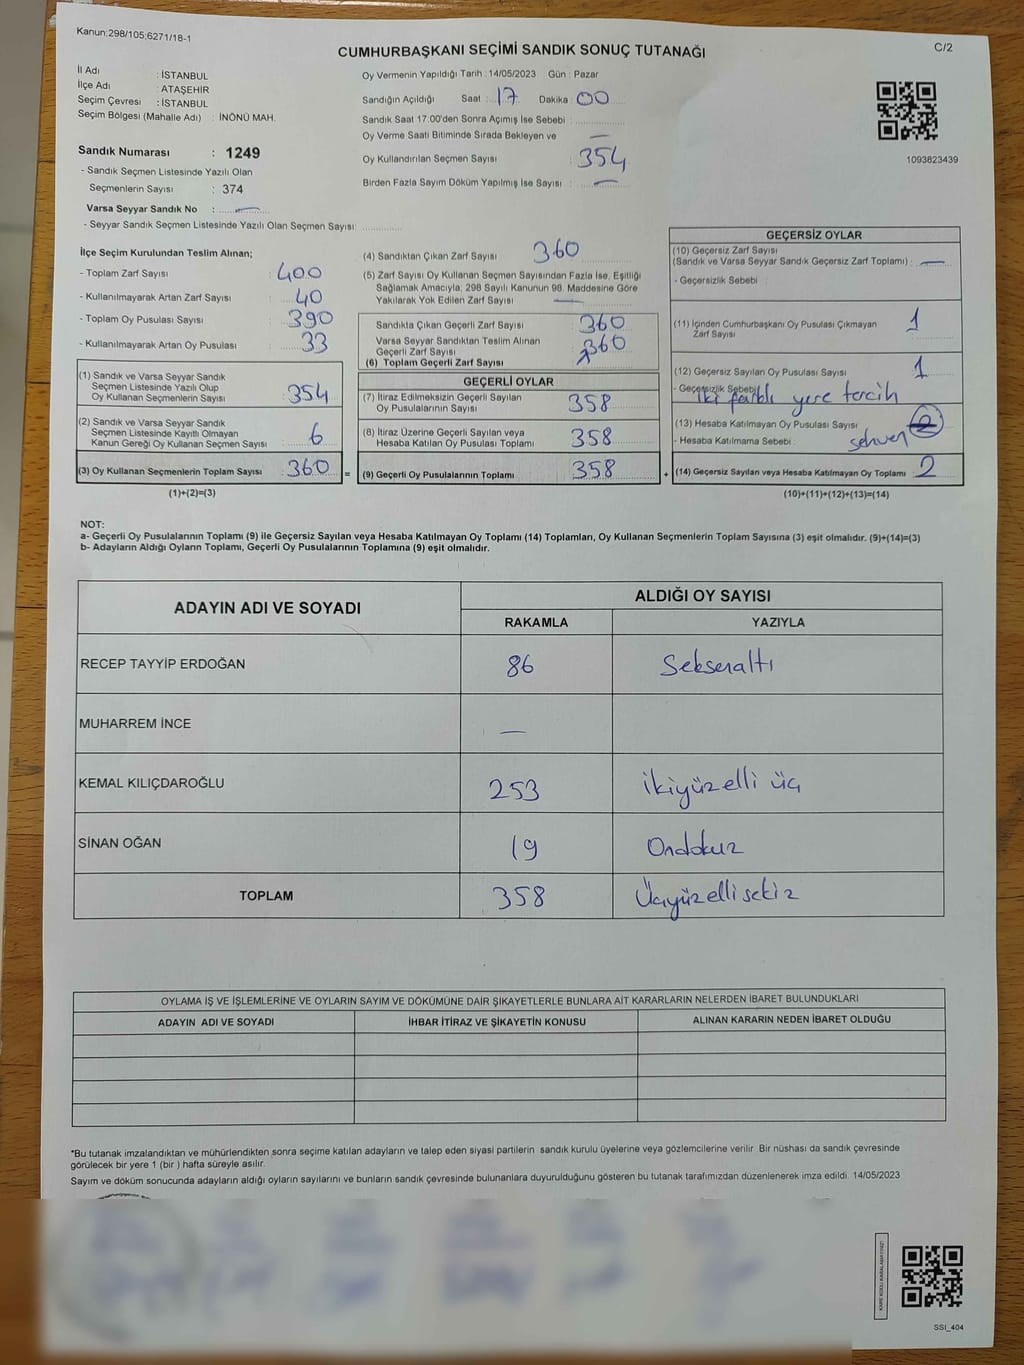 Kanun:298/105;6271/18-1
C/2
CUMHURBAŞKANI SEÇİMİ SANDIK SONUÇ TUTANAĞI
İl Adı : İSTANBUL
İlçe Adı : ATAŞEHİR
Seçim Çevresi : İSTANBUL
Seçim Bölgesi (Mahalle Adı) : İNÖNÜ MAH.
Sandık Numarası : 1249
- Sandık Seçmen Listesinde Yazılı Olan
Seçmenlerin Sayısı : 374
Varsa Seyyar Sandık No : —
- Seyyar Sandık Seçmen Listesinde Yazılı Olan Seçmen Sayısı:
Oy Vermenin Yapıldığı Tarih : 14/05/2023 Gün : Pazar
Sandığın Açıldığı Saat : 17 Dakika : 00
Sandık Saat 17:00'den Sonra Açımış İse Sebebi :
Oy Verme Saati Bitiminde Sırada Bekleyen ve —
Oy Kullandırılan Seçmen Sayısı : 354
Birden Fazla Sayım Döküm Yapılmış İse Sayısı : —
1093823439
İlçe Seçim Kurulundan Teslim Alınan;
- Toplam Zarf Sayısı : 400
- Kullanılmayarak Artan Zarf Sayısı : 40
- Toplam Oy Pusulası Sayısı : 390
- Kullanılmayarak Artan Oy Pusulası : 33
(1) Sandık ve Varsa Seyyar Sandık
Seçmen Listesinde Yazılı Olup
Oy Kullanan Seçmenlerin Sayısı : 354
(2) Sandık ve Varsa Seyyar Sandık
Seçmen Listesinde Kayıtlı Olmayan
Kanun Gereği Oy Kullanan Seçmen Sayısı : 6
(3) Oy Kullanan Seçmenlerin Toplam Sayısı : 360 =
(1)+(2)=(3)
(4) Sandıktan Çıkan Zarf Sayısı : 360
(5) Zarf Sayısı Oy Kullanan Seçmen Sayısından Fazla İse, Eşitliği
Sağlamak Amacıyla, 298 Sayılı Kanunun 98. Maddesine Göre
Yakılarak Yok Edilen Zarf Sayısı : —
Sandıkta Çıkan Geçerli Zarf Sayısı : 360
Varsa Seyyar Sandıktan Teslim Alınan
Geçerli Zarf Sayısı
(6) Toplam Geçerli Zarf Sayısı : 360
GEÇERLİ OYLAR
(7) İtiraz Edilmeksizin Geçerli Sayılan
Oy Pusulalarının Sayısı : 358
(8) İtiraz Üzerine Geçerli Sayılan veya
Hesaba Katılan Oy Pusulası Toplamı : 358
(9) Geçerli Oy Pusulalarının Toplamı : 358 +
GEÇERSİZ OYLAR
(10) Geçersiz Zarf Sayısı
(Sandık ve Varsa Seyyar Sandık Geçersiz Zarf Toplamı) : —
- Geçersizlik Sebebi :
(11) İçinden Cumhurbaşkanı Oy Pusulası Çıkmayan
Zarf Sayısı : 1
(12) Geçersiz Sayılan Oy Pusulası Sayısı : 1
- Geçersizlik Sebebi : iki farklı yere tercih
(13) Hesaba Katılmayan Oy Pusulası Sayısı : 2
- Hesaba Katılmama Sebebi : sehven
(14) Geçersiz Sayılan veya Hesaba Katılmayan Oy Toplamı : 2
(10)+(11)+(12)+(13)=(14)
NOT:
a- Geçerli Oy Pusulalarının Toplamı (9) ile Geçersiz Sayılan veya Hesaba Katılmayan Oy Toplamı (14) Toplamları, Oy Kullanan Seçmenlerin Toplam Sayısına (3) eşit olmalıdır. (9)+(14)=(3)
b- Adayların Aldığı Oyların Toplamı, Geçerli Oy Pusulalarının Toplamına (9) eşit olmalıdır.
ADAYIN ADI VE SOYADI
ALDIĞI OY SAYISI
RAKAMLA YAZIYLA
RECEP TAYYİP ERDOĞAN 86 Seksenaltı
MUHARREM İNCE —
KEMAL KILIÇDAROĞLU 253 ikiyüzelli üç
SİNAN OĞAN 19 Ondokuz
TOPLAM 358 Üçyüzellisekiz
OYLAMA İŞ VE İŞLEMLERİNE VE OYLARIN SAYIM VE DÖKÜMÜNE DAİR ŞİKAYETLERLE BUNLARA AİT KARARLARIN NELERDEN İBARET BULUNDUKLARI
ADAYIN ADI VE SOYADI İHBAR İTİRAZ VE ŞİKAYETİN KONUSU ALINAN KARARIN NEDEN İBARET OLDUĞU
*Bu tutanak imzalandıktan ve mühürlendikten sonra seçime katılan adayların ve talep eden siyasi partilerin sandık kurulu üyelerine veya gözlemcilerine verilir. Bir nüshası da sandık çevresinde
görülecek bir yere 1 (bir ) hafta süreyle asılır.
Sayım ve döküm sonucunda adayların aldığı oyların sayılarını ve bunların sandık çevresinde bulunanlara duyurulduğunu gösteren bu tutanak tarafımızdan düzenlenerek imza edildi. 14/05/2023
SSI_404